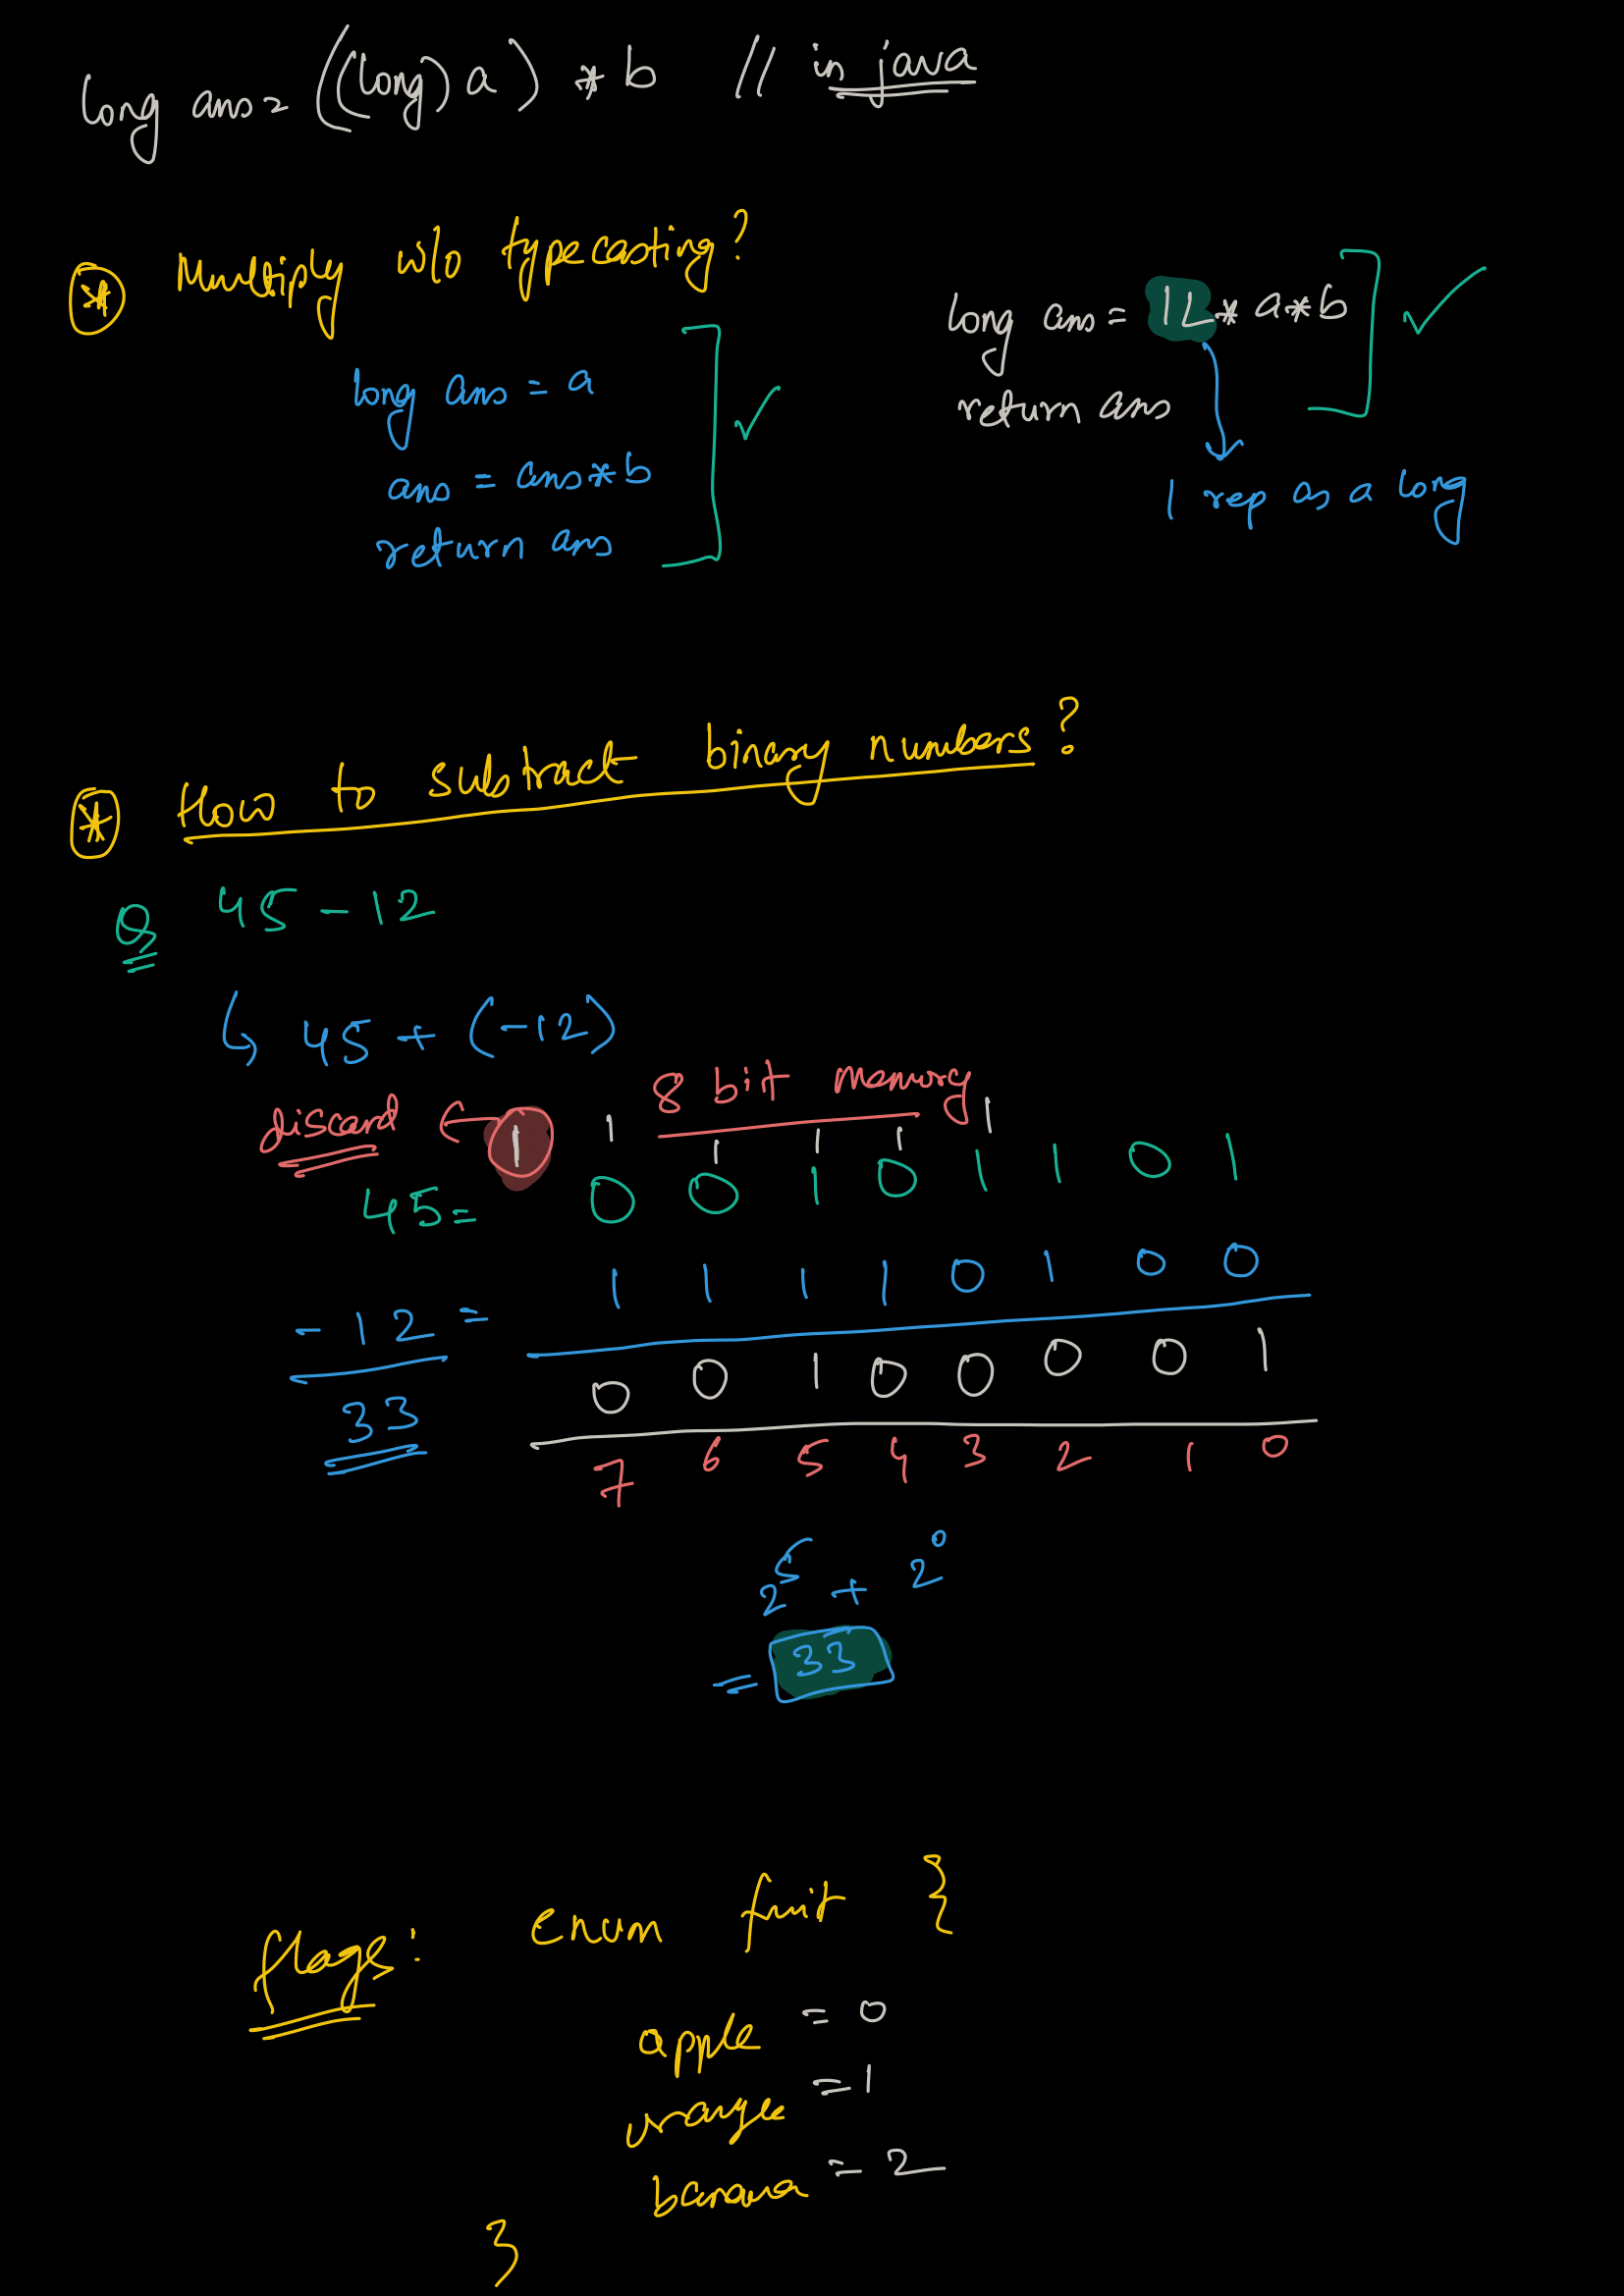 long ans = ((long) a) * b // in java
* Multiply w/o typecasting?
long ans = a
ans = ans * b
return ans
long ans = 1L * a * b
return ans
1 rep as a long
* How to subtract binary numbers?
Q 45 - 12
↳ 45 + (-12)
8 bit memory
discard ← 1 1 1 1 1 1
45 = 0 0 1 0 1 1 0 1
-12 = 1 1 1 1 0 1 0 0
33 0 0 1 0 0 0 0 1
7 6 5 4 3 2 1 0
2⁵ + 2⁰
= 33
flags: enum fruit {
apple = 0
orange = 1
banana = 2
}